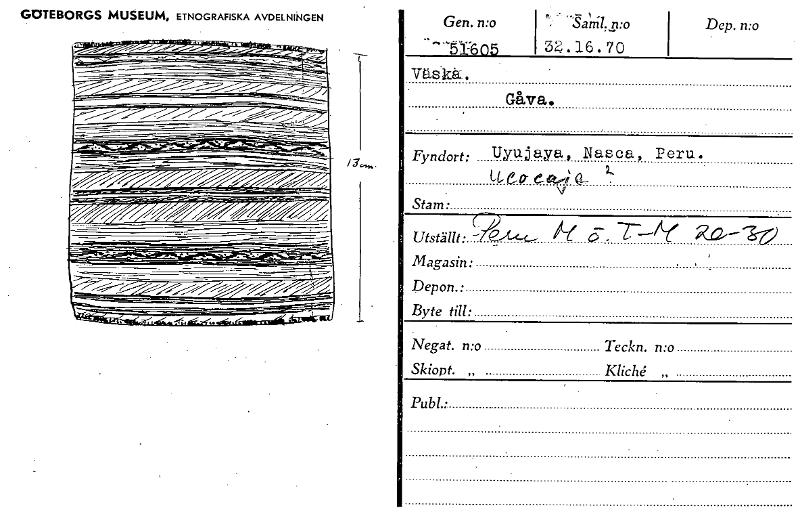 GÖTEBORGS MUSEUM, ETNOGRAFISKA AVDELNINGEN
13 cm.
Gen. n:o Saml. n:o Dep. n:o
51605 32.16.70
Väska.
Gåva.
Fyndort: Uyujaya, Nasca, Peru.
Ucocaje ?
Stam:
Utställt: Peru M ö. T-M 20-30
Magasin:
Depon.:
Byte till:
Negat. n:o Teckn. n:o
Skiopt. „ Kliché „
Publ.: